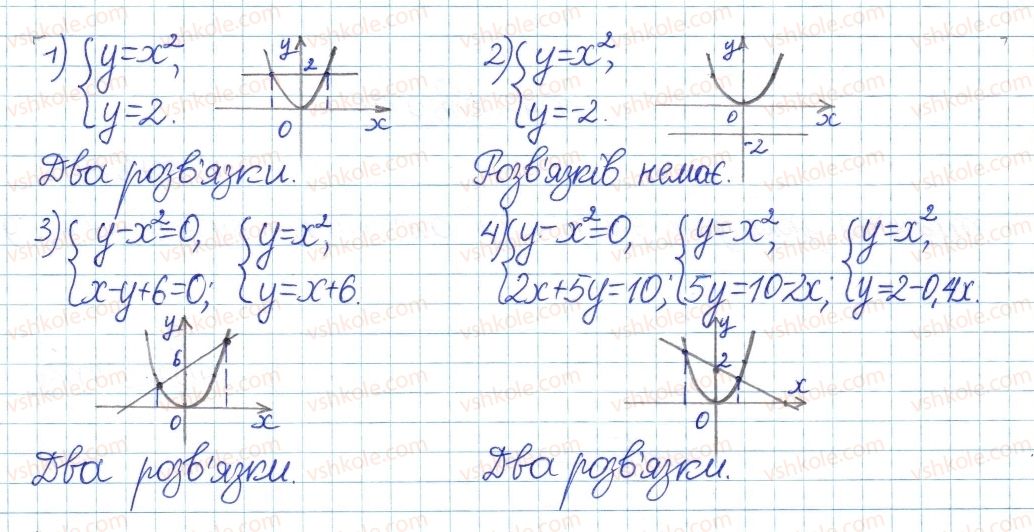 1) { y=x²,
y=2.
y
2
0
x
Два розв'язки.
2) { y=x²,
y=-2.
y
0
x
-2
Розв'язків немає.
3) { y-x²=0, { y=x²,
x-y+6=0; y=x+6.
y
6
0
x
Два розв'язки.
4) { y-x²=0, { y=x², { y=x²,
2x+5y=10; 5y=10-2x; y=2-0,4x.
y
2
x
0
Два розв'язки.
vshkole.com